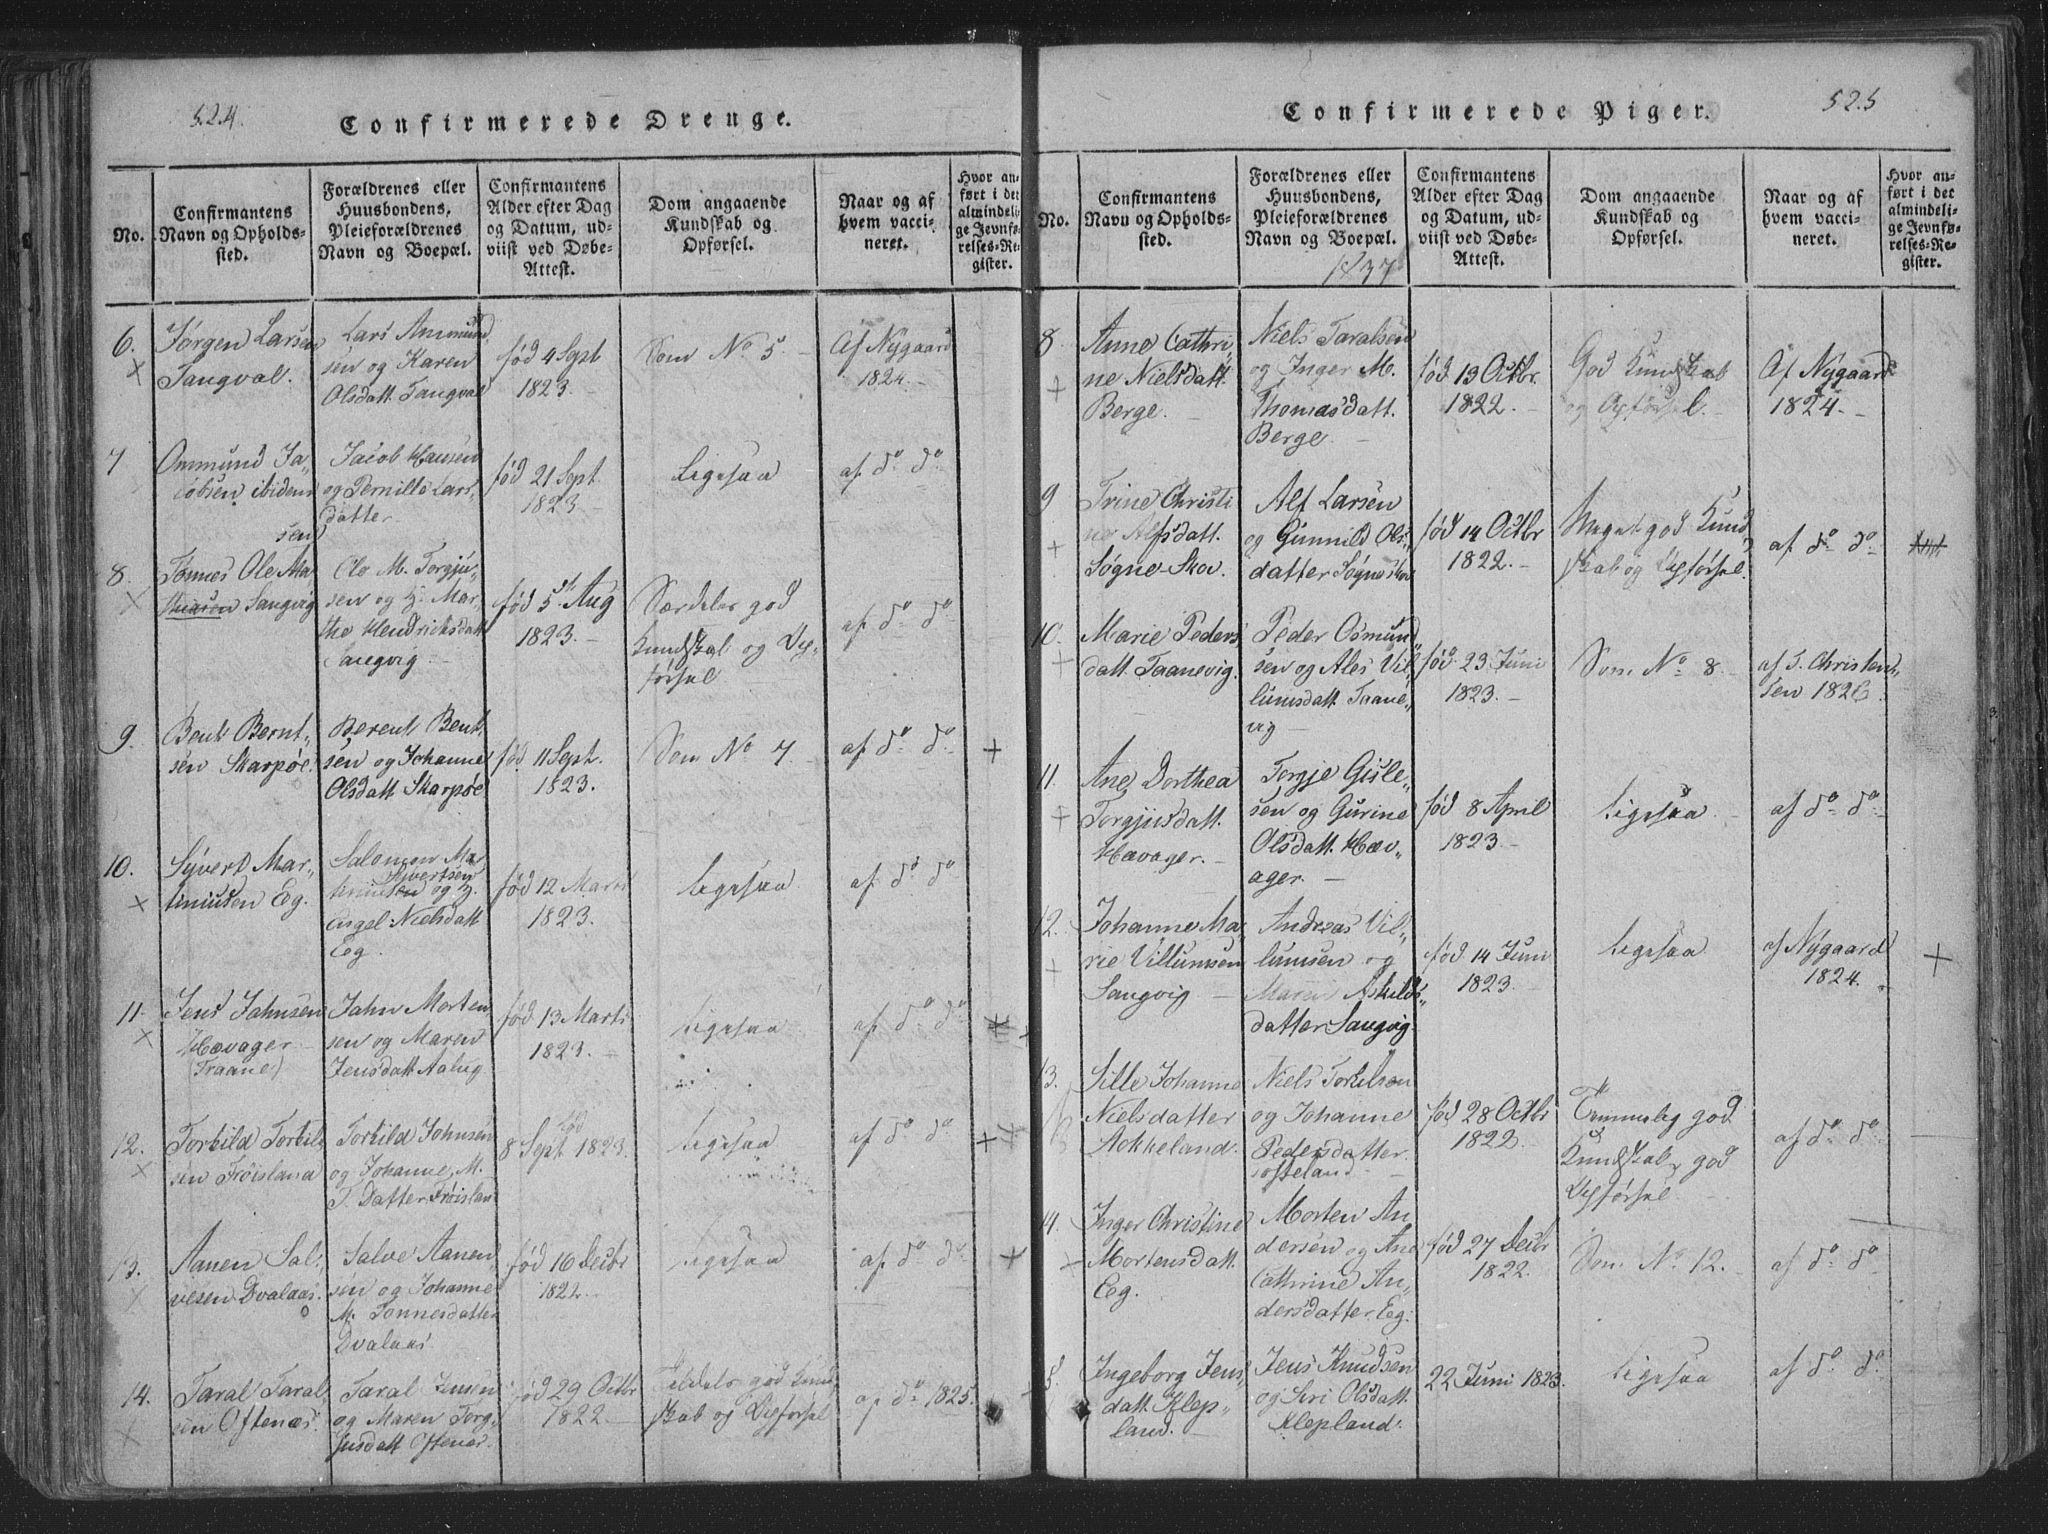 524.
Confirmerede Drenge.
No.
Confirmantens
Navn og Opholds-
sted.
Forældrenes eller
Huusbondens,
Pleieforældrenes
Navn og Boepæl.
Confirmantens
Alder efter Dag
og Datum, ud-
viist ved Døbe-
Attest.
Dom angaaende
Kundskab og
Opførsel.
Naar og af
hvem vacci-
neret.
Hvor an-
ført i det
almindeli-
ge Jevnfø-
relses-Re-
gister.
6.
Jørgen Larsen
Tangval.
Lars Ammund
sen og Karen
Olsdatt. Tangval
fød 4 Sept
1823.
Som No 5.
Af Nygaard
1824.
7
Ommund Ja-
cobsen ibidem
Jacob Hansen
og Pernille Lars
datter
fød 21 Sept.
1823
Ligesaa
af do do
8.
Tønnes Ole Ma
thiasen Sangvig
Ole M. Torgju-
sen og H. Mar-
the Hendricksdatt
Sangvig
fød 5 Aug
1823.
Særdeles god
Kundskab og Op-
førsel
af do do
9.
Bent Bernt-
sen Skarpøe.
Berent Bent
sen og Johanne
Olsdatt Skarpøe
fød 11 Sept.
1823.
Som No 7.
af do do
+
10.
Syvert Mar-
tiniusen Eg.
Salomon Ma
Syvertsen
tiniusen og H.
Engel Nielsdatt
Eg.
fød 12 Marts
1823.
Ligesaa
af do do
11.
Jens Jahnsen
Hævager
(Traane)
Jahn Morten
sen og Maren
Jensdatt Aalug
fød 13 Marts
1823.
Ligesaa
af do do
12.
Torkild Torkils
sen Frøisland
Torkild Johnsen
og Johanne M.
T. Datter Frøislan
fød
8 Sept 1823.
Ligesaa
af do do
+
13.
Aanen Sal-
vesen Dvalaas.
Salve Aanen
sen og Johanne
M. Tønnesdatter
Dvalaas
fød 16 Decbr
1822.
Ligesaa
af do do
+
14.
Taral Taral
sen Oftenæs.
Taral Jensen
og Maren Torg-
jusdatt Oftenæs.
fød 29 Octbr
1822.
god Kund
skab og Opførsel
af do 1825.
525
Confirmerede Piger.
No.
Confirmantens
Navn og Opholds-
sted.
Forældrenes eller
Huusbondens,
Pleieforældrenes
Navn og Boepæl.
1837
Confirmantens
Alder efter Dag
og Datum, ud-
viist ved Døbe-
Attest.
Dom angaaende
Kundskab og
Opførsel.
Naar og af
hvem vacci-
neret.
Hvor an-
ført i det
almindeli-
ge Jevnfø-
relses-Re-
gister.
8
Anne Cathri-
ne Nielsdatt.
Berge.
Niels Taralsen
og Inger M.
Thomasdatt.
Berge
fød 13 Octbr.
1822.
God Kundskab
og Opførsel.
Af Nygaard
1824.
9
Trine Christi
ne Alfsdatt.
Søgne-Skov.
Alf Larsen
og Gunnild Ols-
datter Søgneskov
fød 14 Octbr
1822.
Meget god Kund
skab og Opførsel.
af do do
10.
Marie Peders
datt. Taanevig.
Peder Osmund
sen og Ales Vil-
lumsdatt Taane-
vig
fød 23 Juni
1823.
Som No 8.
af T. Christen-
sen 1826.
11.
Ane Dorthea
Torgjusdatt.
Hævager.
Torgje Gisle-
sen og Gurine
Olsdatt. Hæv-
ager.
fød 8 April
1823.
Ligesaa
af do do
12.
Johanne Ma-
rie Villumsen
Sangvig
Andreas Vil-
lumsen og
Maren Askilds-
datter Sangvig.
fød 14 Juni
1823.
Ligesaa
af Nygaard
1824.
+
13.
Sille Johanne
Nielsdatter
Aokkeland.
Niels Torkilsen
og Johanne
Pedersdatter
fød 28 Octbr
1822.
Temmelig god
Kundskab, god
Opførsel.
af do do
14.
Inger Christine
Mortensdatt.
Eg.
Morten An
dersen og Ane
Cathrine An-
dersdatter Eg.
fød 27 Decbr
1822.
Som No 12.
af do do
5.
Ingeborg Jens-
datt. Klep-
land.
Jens Knudsen
og Siri Olsdatt.
Klepland.
22 Juni 1823.
Ligesaa
af do do